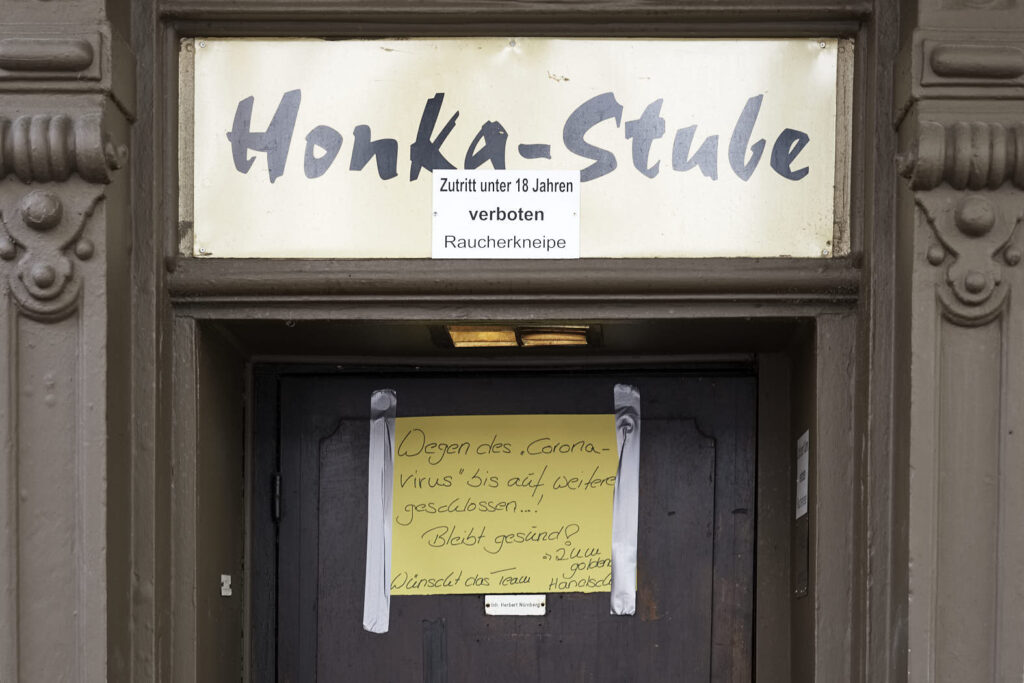 Honka-Stube
Zutritt unter 18 Jahren
verboten
Raucherkneipe
Wegen des „Corona-
virus" bis auf weitere
geschlossen...!
Bleibt gesund!
→ Zum
golden
Wünscht das Team Handsch
Inh. Herbert Nürnberg